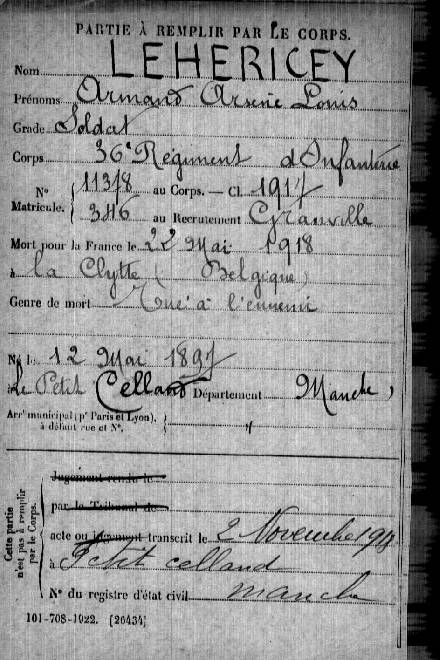 PARTIE À REMPLIR PAR LE CORPS.
Nom LEHERICEY
Prénoms Armand Arsène Louis
Grade Soldat
Corps 36e Régiment d'Infanterie
N° Matricule. { 11378 au Corps. — Cl. 1917
346 au Recrutement Granville
Mort pour la France le 22 Mai 1918
à la Clytte (Belgique)
Genre de mort Tué à l'ennemi
Né le 12 Mai 1897
à Le Petit Celland Département Manche
Arrt municipal (pr Paris et Lyon), à défaut rue et N°. } "
Cette partie n'est pas à remplir par le Corps.
Jugement rendu le
par le Tribunal de
acte ou jugement transcrit le 2 Novembre 1918
à Petit Celland
N° du registre d'état civil Manche
101-708-1922. [26434]